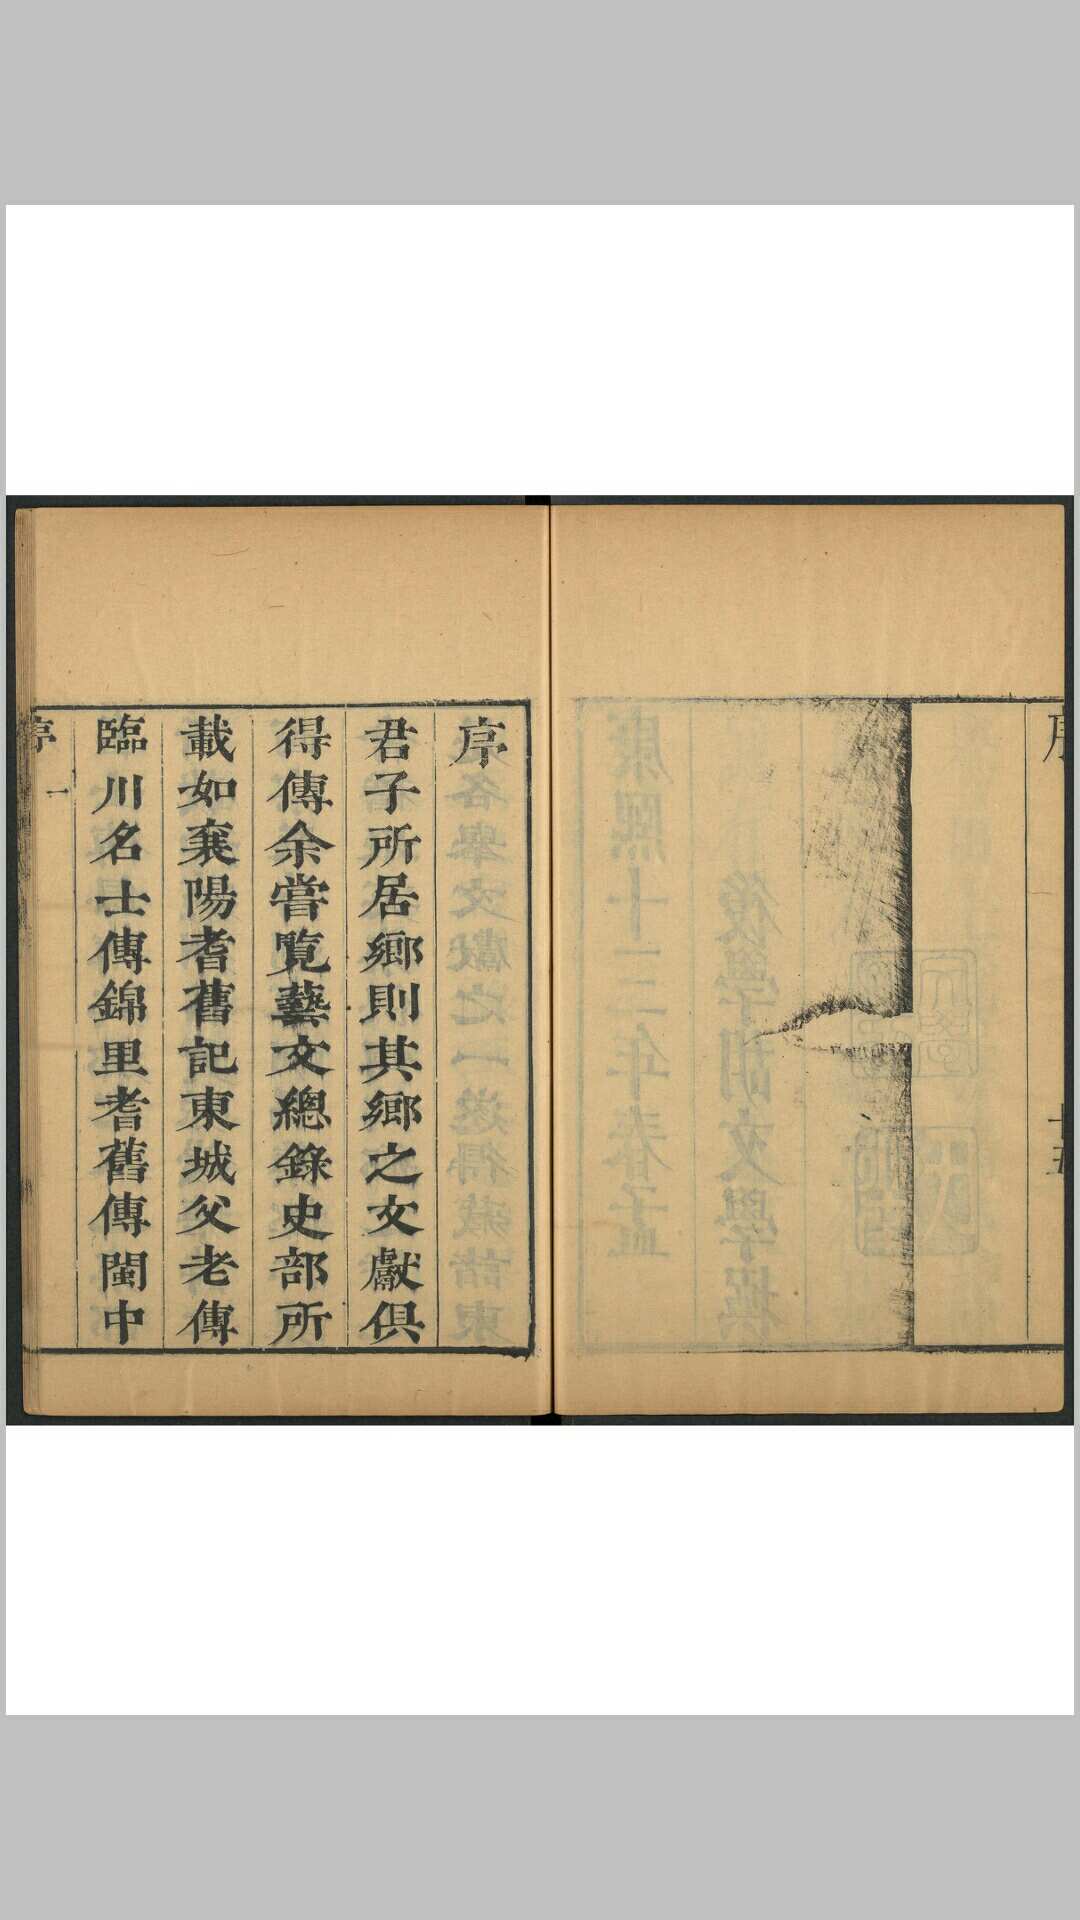 序
十五
康熙十二年春孟
後學胡文學撰
序
君子所居鄉則其鄉之文獻俱
得傳余嘗覽藝文總錄史部所
載如襄陽耆舊記東城父老傳
臨川名士傳錦里耆舊傳閩中
序
一